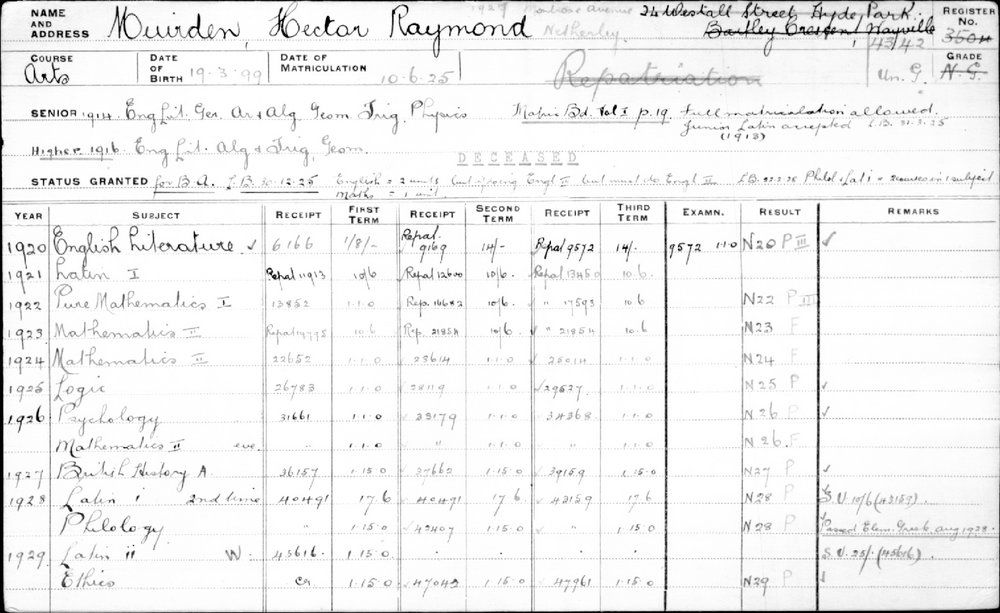 NAME AND ADDRESS Muirden, Hector Raymond 1927 Avenue 24 Westall Street, Hyde Park. REGISTER No.
Netherley. Bartley Crescent, Wayville 43/42 350H
COURSE Arts DATE OF BIRTH 19-3-99 DATE OF MATRICULATION 10-6-25 Repatriation Un. G. GRADE N.G.
SENIOR 1914. Eng Lit. Ger. Ar & Alg Geom Trig. Physics Matric Bd. Vol I p.19. Full matriculation allowed.
Junior Latin accepted (1913)
Higher 1916. Eng Lit. Alg & Trig, Geom.
DECEASED
STATUS GRANTED for B.A. 12-25 English = 2 units but must do Engl II
Maths = 1 unit.
YEAR SUBJECT RECEIPT FIRST TERM RECEIPT SECOND TERM RECEIPT THIRD TERM EXAMN. RESULT REMARKS
1920 English Literature ✓ 6166 1/8/- Repat. 9169 14/- Repat 9572 14/- 9572 1·1·0 N20 P III ✓
1921 Latin I Repat 11913 10/6 Repat 12600 10/6. Repat 13450 10.6
1922 Pure Mathematics I 13852 1·1·0 Rep. 16682 10/6. " 17593 10.6 N22 P III
1923 Mathematics II Repat 19775 10.6 Rep. 21854 10/6. " 21854 10.6 N23 F
1924 Mathematics II 22652 1·1·0 23614 1·1·0 25014 1·1·0 N24 F
1925 Logic 26783 1·1·0 ✓28119 1·1·0 ✓29537 1·1·0 N25 P ✓
1926 Psychology 31661 1·1·0 ✓33179 1·1·0 ✓34368 1·1·0 N26 P ✓
Mathematics II eve. " 1·1·0 " 1·1·0 " 1·1·0 N26. F
1927 British History A 36157 1·15·0 ✓37662 1·15·0 ✓39159 1·15·0 N27 P ✓
1928 Latin I 2nd time 40491 17·6 ✓40491 17·6 ✓43159 17·6 N28 P S.U. 10/6 (43159).
Philology " 1·15·0 ✓42407 1·15·0 " 1·15·0 N28 P Passed Elem. Greek Aug 1928.
1929 Latin II W. 45616. 1·15·0 S.U. 25/- (45616)
Ethics Cr 1·15·0 ✓47042 1·15·0 ✓47961 1·15·0 N29 P ✓